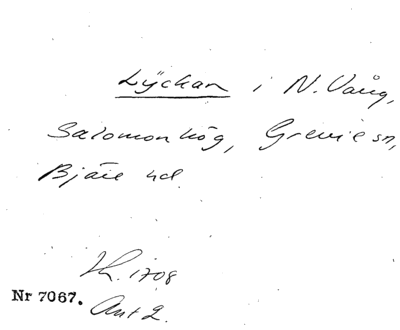 Lyckan i N. Vång,
Salomonhög, Grevie sn,
Bjäre hd.
Lh. 1708
Nr 7067.
Akt 2.